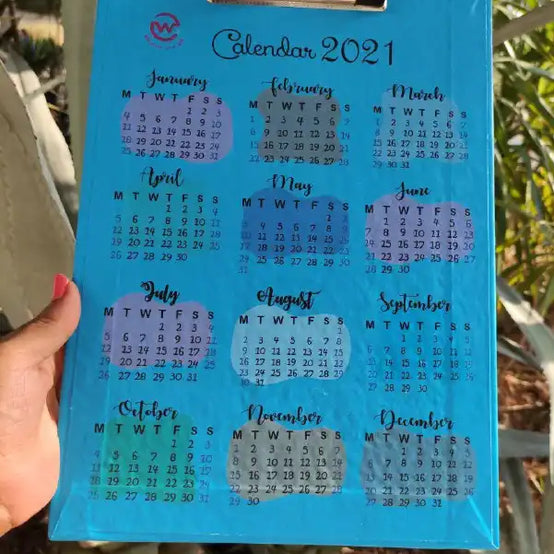 Calendar 2021
January
M T W T F S S
1 2 3
4 5 6 7 8 9 10
11 12 13 14 15 16 17
18 19 20 21 22 23 24
25 26 27 28 29 30 31
February
M T W T F S S
1 2 3 4 5 6 7
8 9 10 11 12 13 14
15 16 17 18 19 20 21
22 23 24 25 26 27 28
March
M T W T F S S
1 2 3 4 5 6 7
8 9 10 11 12 13 14
15 16 17 18 19 20 21
22 23 24 25 26 27 28
29 30 31
April
M T W T F S S
1 2 3 4
5 6 7 8 9 10 11
12 13 14 15 16 17 18
19 20 21 22 23 24 25
26 27 28 29 30
May
M T W T F S S
1 2
3 4 5 6 7 8 9
10 11 12 13 14 15 16
17 18 19 20 21 22 23
24 25 26 27 28 29 30
31
June
M T W T F S S
1 2 3 4 5 6
7 8 9 10 11 12 13
14 15 16 17 18 19 20
21 22 23 24 25 26 27
28 29 30
July
M T W T F S S
1 2 3 4
5 6 7 8 9 10 11
12 13 14 15 16 17 18
19 20 21 22 23 24 25
26 27 28 29 30 31
August
M T W T F S S
1
2 3 4 5 6 7 8
9 10 11 12 13 14 15
16 17 18 19 20 21 22
23 24 25 26 27 28 29
30 31
September
M T W T F S S
1 2 3 4 5
6 7 8 9 10 11 12
13 14 15 16 17 18 19
20 21 22 23 24 25 26
27 28 29 30
October
M T W T F S S
1 2 3
4 5 6 7 8 9 10
11 12 13 14 15 16 17
18 19 20 21 22 23 24
25 26 27 28 29 30 31
November
M T W T F S S
1 2 3 4 5 6 7
8 9 10 11 12 13 14
15 16 17 18 19 20 21
22 23 24 25 26 27 28
29 30
December
M T W T F S S
1 2 3 4 5
6 7 8 9 10 11 12
13 14 15 16 17 18 19
20 21 22 23 24 25 26
27 28 29 30 31